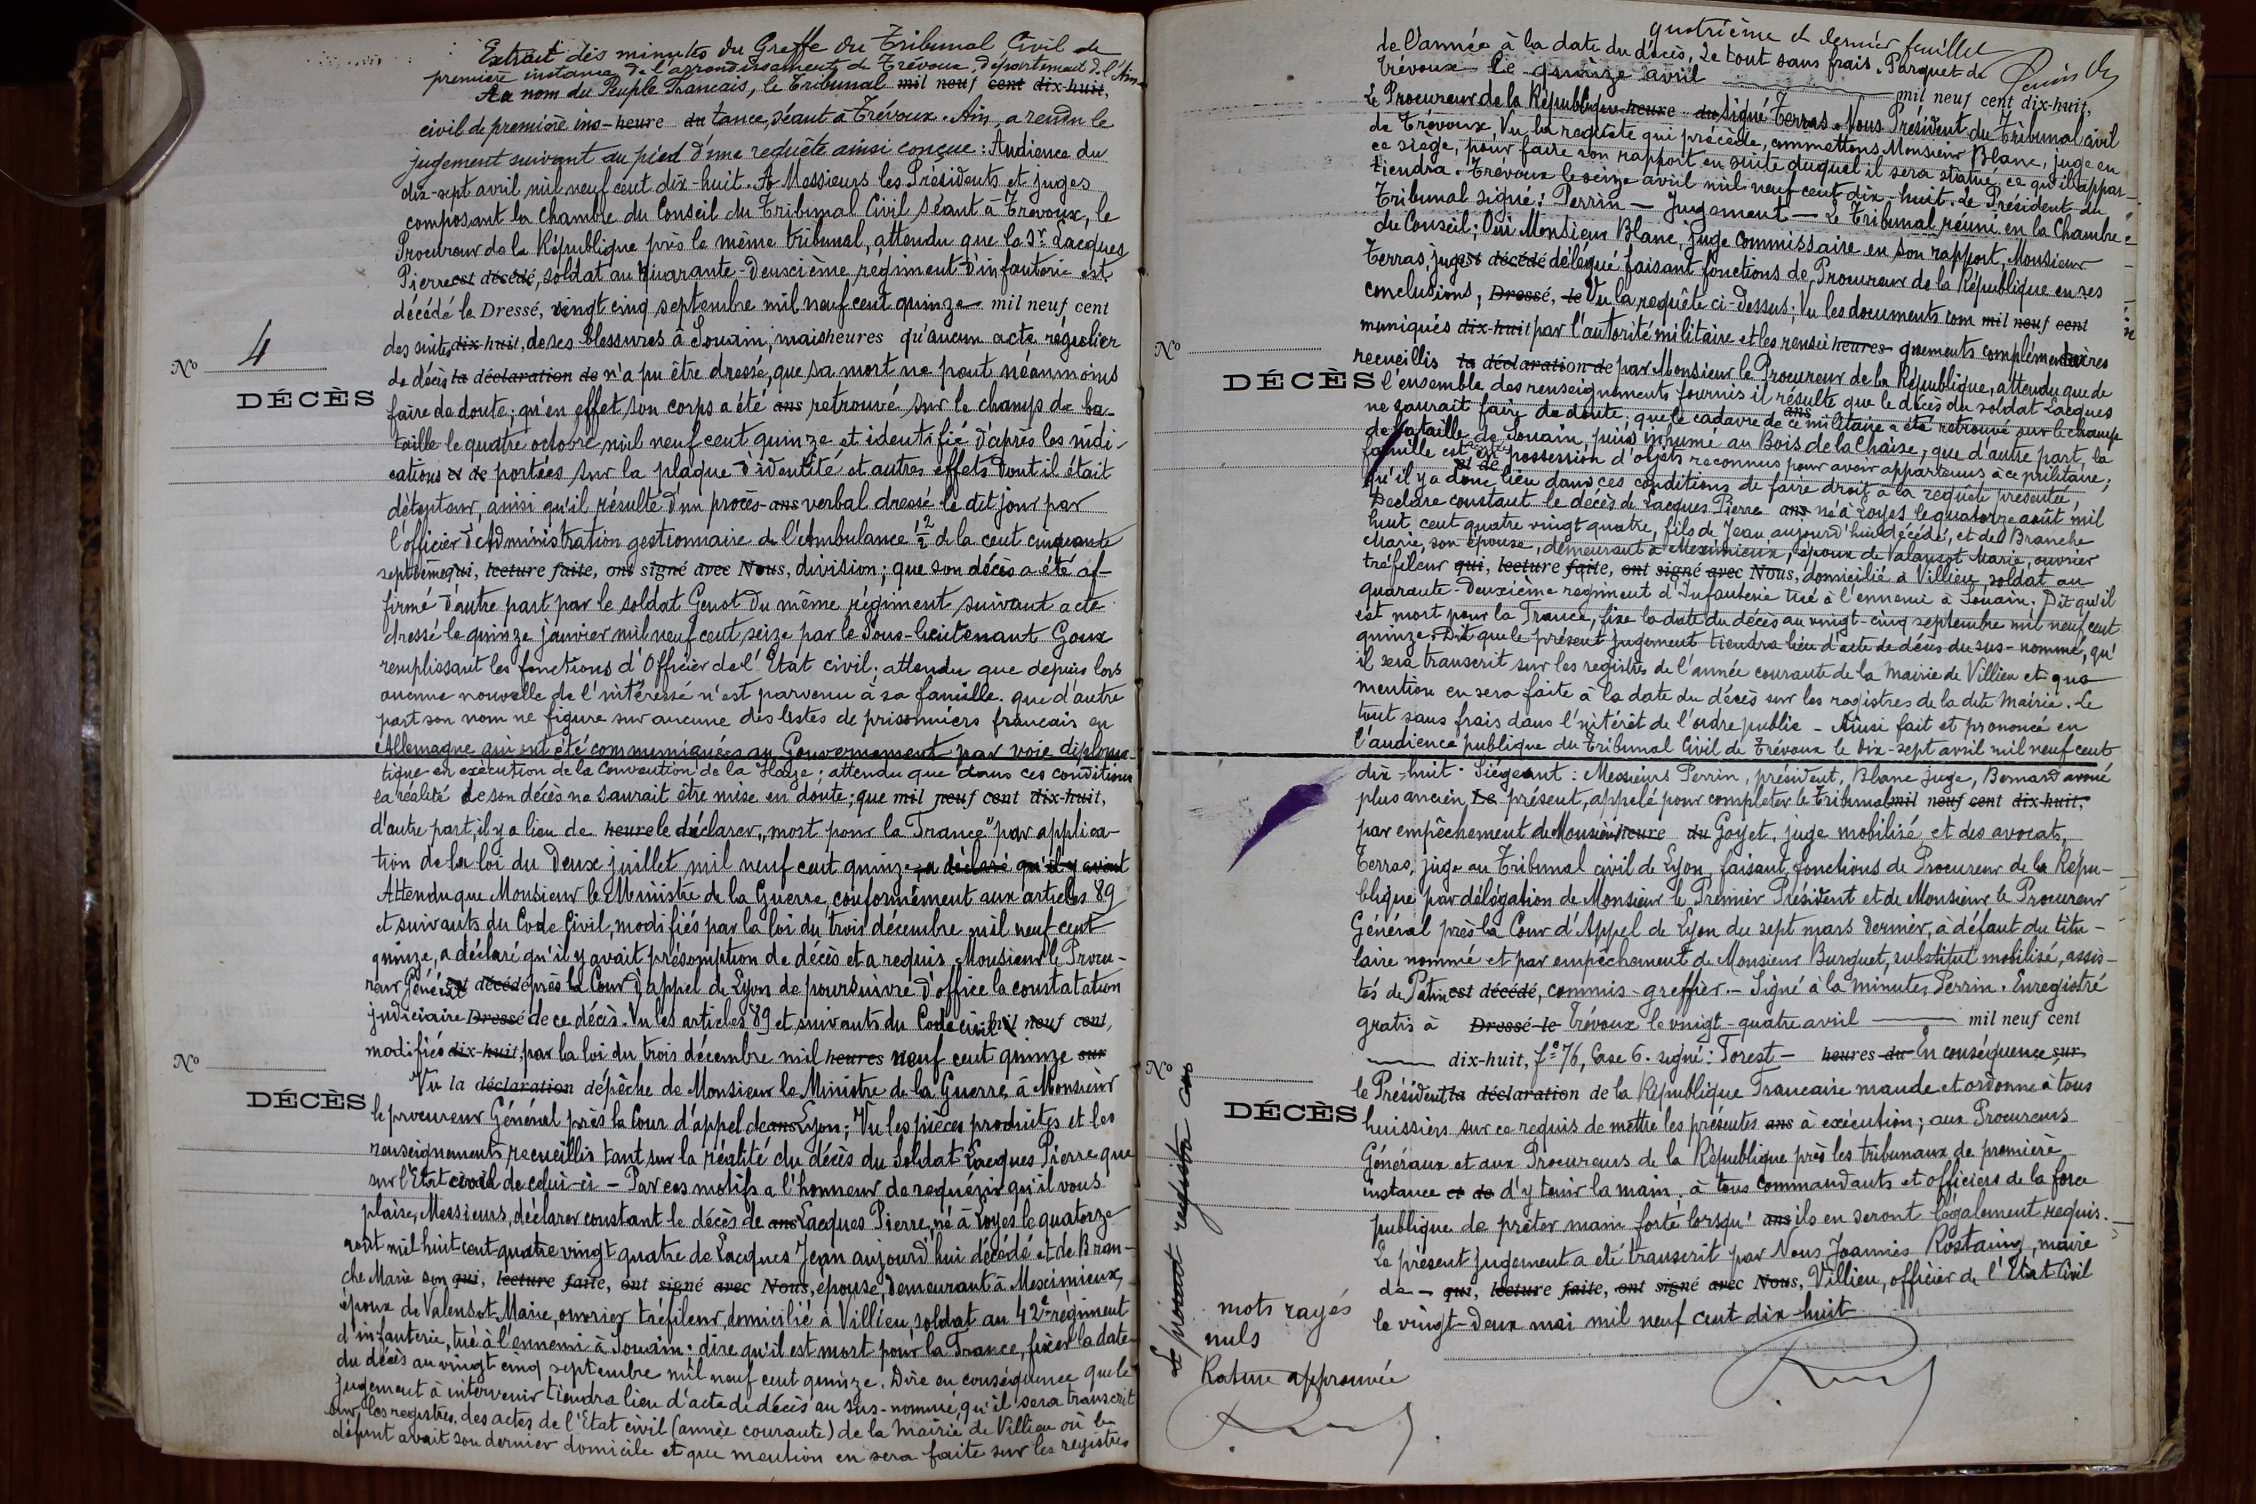 Extrait des minutes du Greffe du Tribunal Civil de
première instance de l'arrondissement de Trévoux, département de l'Ain
Au nom du Peuple Français, le Tribunal mil neuf cent dix-huit,
civil de première ins-heure du tance, séant à Trévoux. Ain, a rendu le
jugement suivant au pied d'une requête ainsi conçue : Audience du
dix-sept avril mil neuf cent dix-huit. A Messieurs les Présidents et juges
composant la chambre du Conseil du Tribunal Civil séant à Trévoux, le
Procureur de la République près le même tribunal, attendu que le Sr Lacques
Pierre est décédé, soldat au quarante-deuxième régiment d'infanterie est
décédé le Dressé, vingt cinq septembre mil neuf cent quinze mil neuf cent
des suites dix-huit, de ses blessures à Souain, mais heures qu'aucun acte régulier
N° 4
de décès la déclaration de n'a pu être dressé, que sa mort ne peut néanmoins
DÉCÈS
faire de doute ; qu'en effet son corps a été ans retrouvé sur le champ de ba-
taille le quatre octobre mil neuf cent quinze et identifié d'après les indi-
cations et de portées sur la plaque d'identité et autres effets dont il était
détenteur, ainsi qu'il résulte d'un procès-ans verbal dressé le dit jour par
l'officier d'Administration gestionnaire de l'Ambulance 1 2/2 de la cent cinquante
septième qui, lecture faite, ont signé avec Nous, division ; que son décès a été af-
firmé d'autre part par le soldat Genot du même régiment suivant acte
dressé le quinze janvier mil neuf cent seize par le Sous-lieutenant Goux
remplissant les fonctions d'Officier de l'Etat civil ; attendu que depuis lors
aucune nouvelle de l'intéressé n'est parvenu à sa famille. que d'autre
part son nom ne figure sur aucune des listes de prisonniers français en
Allemagne qui ont été communiquées au Gouvernement par voie diploma-
tique en exécution de la Convention de la Haye ; attendu que dans ces conditions
la réalité de son décès ne saurait être mise en doute ; que mil neuf cent dix-huit,
d'autre part, il y a lieu de heure le déclarer „mort pour la France" par applica-
tion de la loi du deux juillet mil neuf cent quinze, a déclaré qu'il y avait
Attendu que Monsieur le Ministre de la Guerre, conformément aux articles 89
et suivants du Code Civil, modifiés par la loi du trois décembre mil neuf cent
quinze, a déclaré qu'il y avait présomption de décès et a requis Monsieur le Procu-
reur Général est décédé près la Cour d'appel de Lyon de poursuivre d'office la constatation
judiciaire Dressé de ce décès. Vu les articles 89 et suivants du Code civil mil neuf cent,
modifiés dix-huit, par la loi du trois décembre mil heures neuf cent quinze sur
N°
Vu la déclaration dépêche de Monsieur le Ministre de la Guerre à Monsieur
DÉCÈS
le procureur Général près la Cour d'appel de ans Lyon ; Vu les pièces produites et les
renseignements recueillis tant sur la réalité du décès du Soldat Lacques Pierre que
sur l'Etat civil de celui-ci – Par ces motifs a l'honneur de requérir qu'il vous
plaise, Messieurs, déclarer constant le décès de ans Lacques Pierre, né à Loyes le quatorze
août mil huit cent quatre vingt quatre de Lacques Jean aujourd'hui décédé et de Bran-
che Marie son qui, lecture faite, ont signé avec Nous, épouse, demeurant à Meximieux,
époux de Valensot Marie, ouvrier tréfileur, domicilié à Villieu, soldat au 42e régiment
d'infanterie, tué à l'ennemi à Souain ; dire qu'il est mort pour la France, fixer la date
du décès au vingt cinq septembre mil neuf cent quinze. Dire en conséquence que le
jugement à intervenir tiendra lieu d'acte de décès au sus-nommé, qu'il sera transcrit
sur les registres des actes de l'Etat civil (année courante) de la mairie de Villieu où le
défunt avait son dernier domicile et que mention en sera faite sur les registres
quatrième et dernier feuillet
de l'année à la date du décès, Le tout sans frais. Parquet de
Trévoux le quinze avril mil neuf cent dix-huit,
Le Procureur de la République heure du signé Terras. Nous Président du Tribunal civil
de Trévoux, Vu la requête qui précède, commettons Monsieur Blanc, juge en
ce siège, pour faire son rapport en suite duquel il sera statué ce qu'il appar-
tiendra. Trévoux le seize avril mil neuf cent dix-huit. Le Président du
Tribunal signé : Perrin — Jugement — Le Tribunal réuni en la Chambre
du Conseil ; Oui Monsieur Blanc, juge commissaire en son rapport, Monsieur
Terras, juge est décédé délégué faisant fonctions de Procureur de la République en ses
conclusions, Dressé, le Vu la requête ci-dessus ; Vu les documents com mil neuf cent
muniqués dix-huit par l'autorité militaire et les rensei heures gnements complémentaires
N°
recueillis la déclaration de par Monsieur le Procureur de la République, attendu que de
DÉCÈS
l'ensemble des renseignements fournis il résulte que le décès du soldat Lacques
ne saurait faire de doute ; que le cadavre de ce ans militaire a été retrouvé sur le champ
de bataille de Souain, puis inhumé au Bois de la Chaise, que d'autre part, la
famille est en possession d'objets reconnus pour avoir appartenus à ce militaire ;
qu'il y a et de donc lieu dans ces conditions de faire droit à la requête présentée
Déclare constant le décès de Lacques Pierre ans né à Loyes le quatorze août mil
huit cent quatre vingt quatre, fils de Jean aujourd'hui décédé, et de Branche
Marie, son épouse, demeurant à Meximieux, époux de Valansot Marie, ouvrier
tréfileur qui, lecture faite, ont signé avec Nous, domicilié à Villieu, soldat au
quarante-deuxième régiment d'Infanterie tué à l'ennemi à Souain. Dit qu'il
est mort pour la France, fixe la date du décès au vingt-cinq septembre mil neuf cent
quinze. Dit que le présent jugement tiendra lieu d'acte de décès du sus-nommé, qu'
il sera transcrit sur les registres de l'année courante de la mairie de Villieu et que
mention en sera faite à la date du décès sur les registres de la dite Mairie. Le
tout sans frais dans l'intérêt de l'ordre public – Ainsi fait et prononcé en
l'audience publique du Tribunal Civil de Trévoux le dix-sept avril mil neuf cent
dix-huit. Siégeant : Messieurs Perrin, président, Blanc juge, Bernard avoué
plus ancien Le présent, appelé pour completer le Tribunal mil neuf cent dix-huit,
par empêchement de Monsieur heure du Goyet, juge mobilisé et des avocats,
Terras, juge au Tribunal civil de Lyon, faisant fonctions de Procureur de la Répu-
blique par délégation de Monsieur le Premier Président et de Monsieur le Procureur
Général près la Cour d'Appel de Lyon du sept mars dernier, à défaut du titu-
laire nommé et par empêchement de Monsieur Burquet, substitut mobilisé, assis-
tés de Patin est décédé, commis-greffier. – Signé à la minute, Perrin. Enregistré
gratis à Dressé le Trévoux le vingt-quatre avril mil neuf cent
dix-huit, fo 76, Case 6. signé : Forest – heures du En conséquence sur
N°
le Président la déclaration de la République Française mande et ordonne à tous
DÉCÈS
huissiers sur ce requis de mettre les présentes ans à exécution ; aux Procureurs
Généraux et aux Procureurs de la République près les tribunaux de première
instance et de d'y tenir la main, à tous commandants et officiers de la force
publique de prêter main forte lorsqu' ans ils en seront légalement requis.
Le présent jugement a été transcrit par Nous Joannès Rostaing, maire
de – qui, lecture faite, ont signé avec Nous, Villieu, officier de l'Etat Civil
le vingt-deux mai mil neuf cent dix-huit
mots rayés
nuls
Rature approuvée